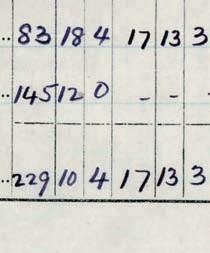 ..83 18 4 17 13 3
..145 12 0 - -
..229 10 4 17 13 3